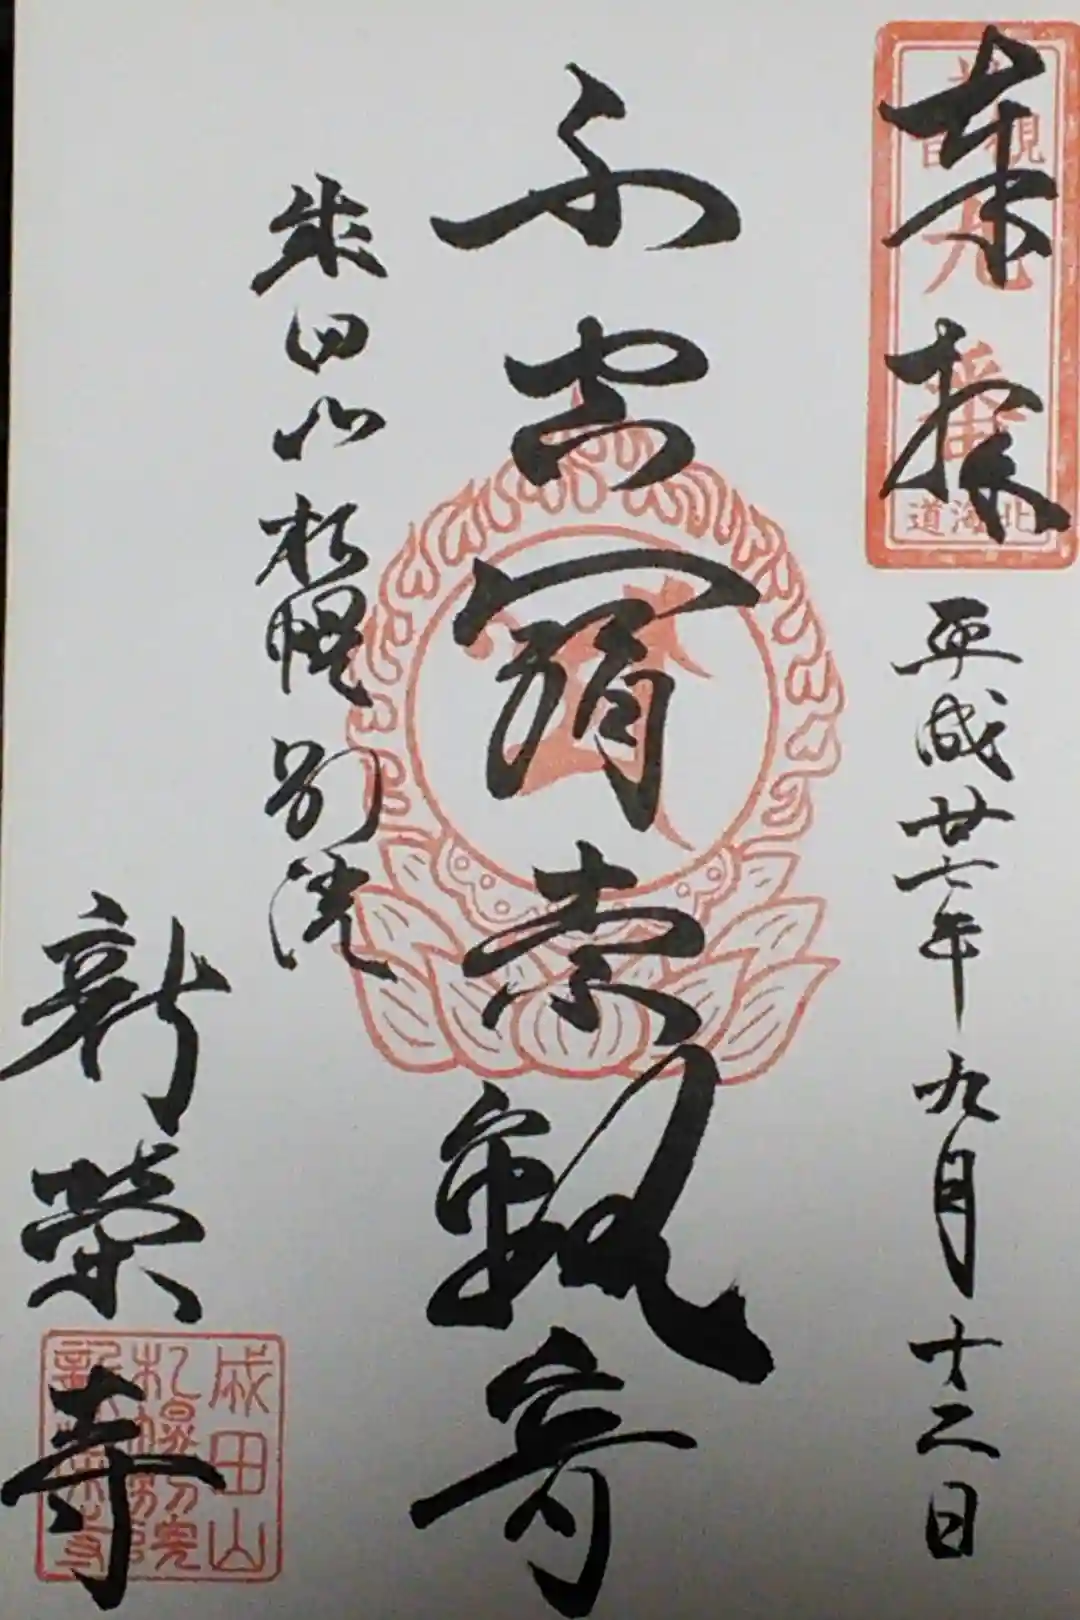 奉拝
平成廿七年九月十二日
不空羂索観音
成田山札幌別院
新栄寺
九番
北海道
成田山
札幌別院
新栄寺